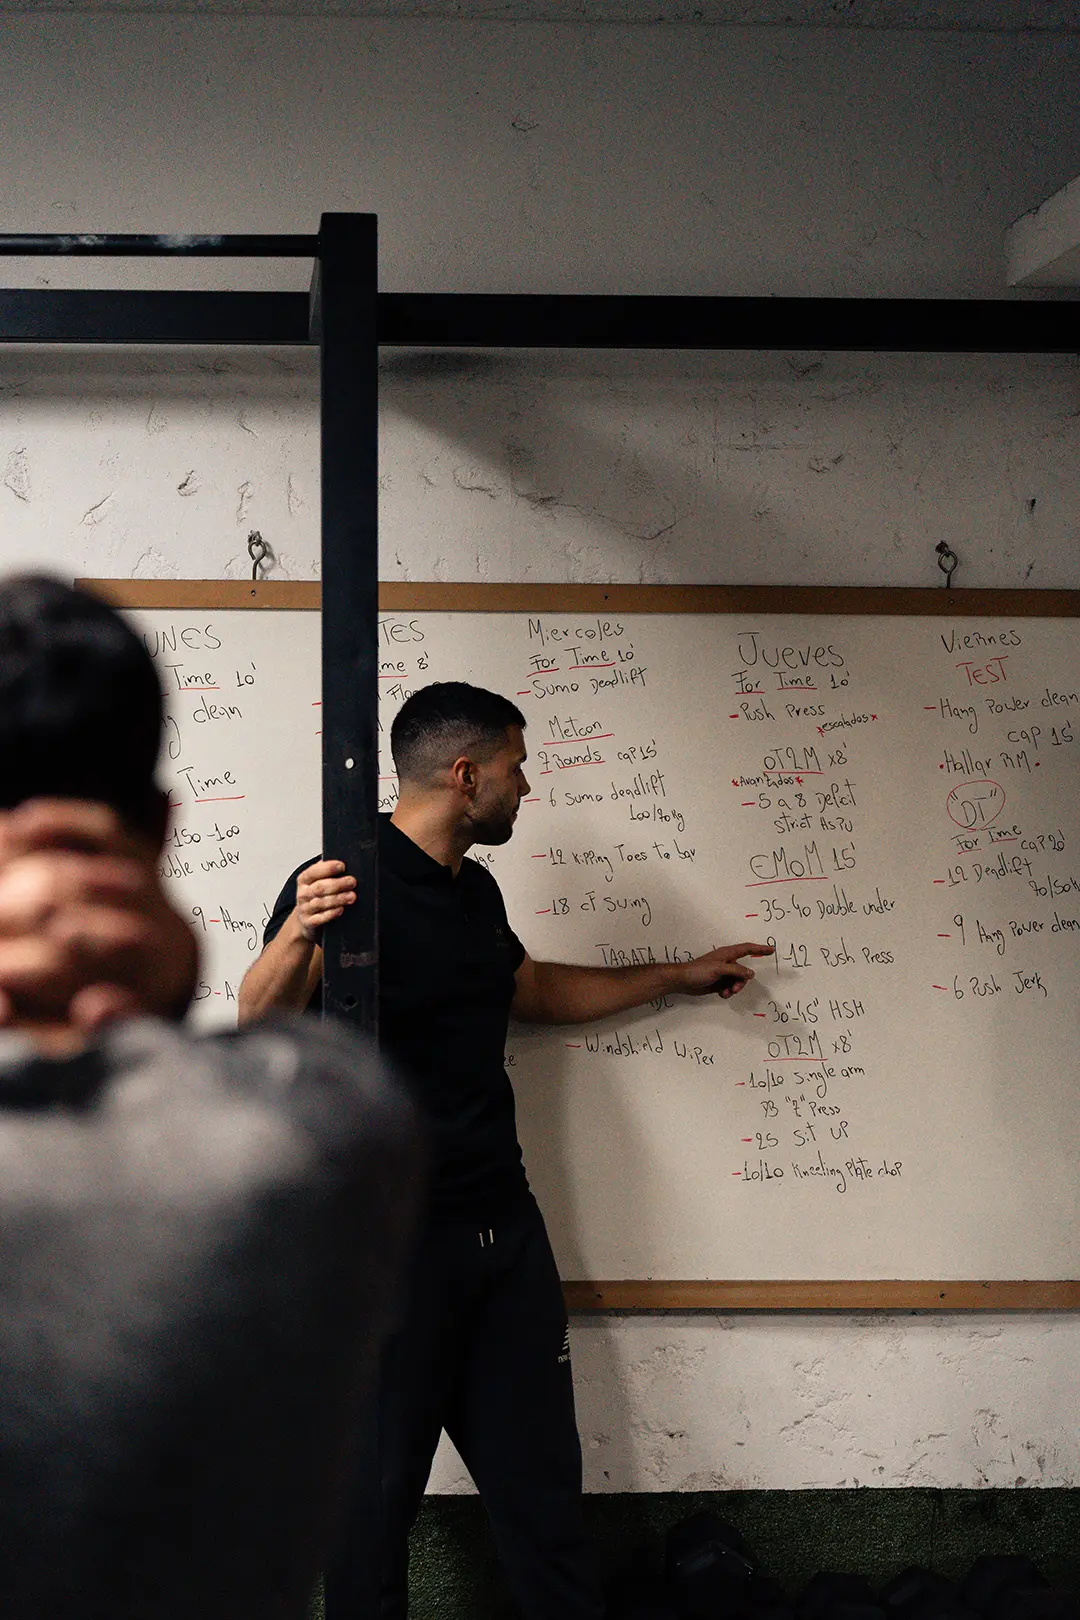 UNES
Time 10'
clean
Time
-150-100
uble under
9-Hang
TES
me 8'
Miercoles
For Time 10'
- Sumo Deadlift
Metcon
7 Rounds cap 15'
- 6 sumo deadlift
100/70kg
- 12 Kipping Toes to bar
- 18 CF Swing
TABATA 16:
- Windshield Wiper
Jueves
For Time 10'
- Push Press
*escalados*
OT2M x8'
*Avanzados*
- 5 a 8 Deficit
strict HSPU
EMOM 15'
- 35-40 Double under
9-12 Push Press
- 30"-45" HSH
OT2M x8'
- 10/10 single arm
DB "Z" Press
- 25 Sit UP
- 10/10 Kneeling Plate chop
Viernes
TEST
- Hang Power clean
cap 15'
• Hallar RM •
"DT"
For Time cap 20'
- 12 Deadlift
70/50k
- 9 Hang Power clean
- 6 Push Jerk